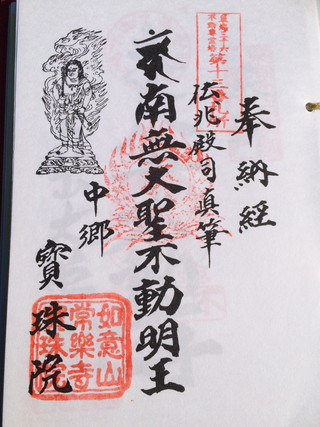 奉納経
伝兆殿司真筆
南無大聖不動明王
中郷
寶珠院
如意山
常樂寺